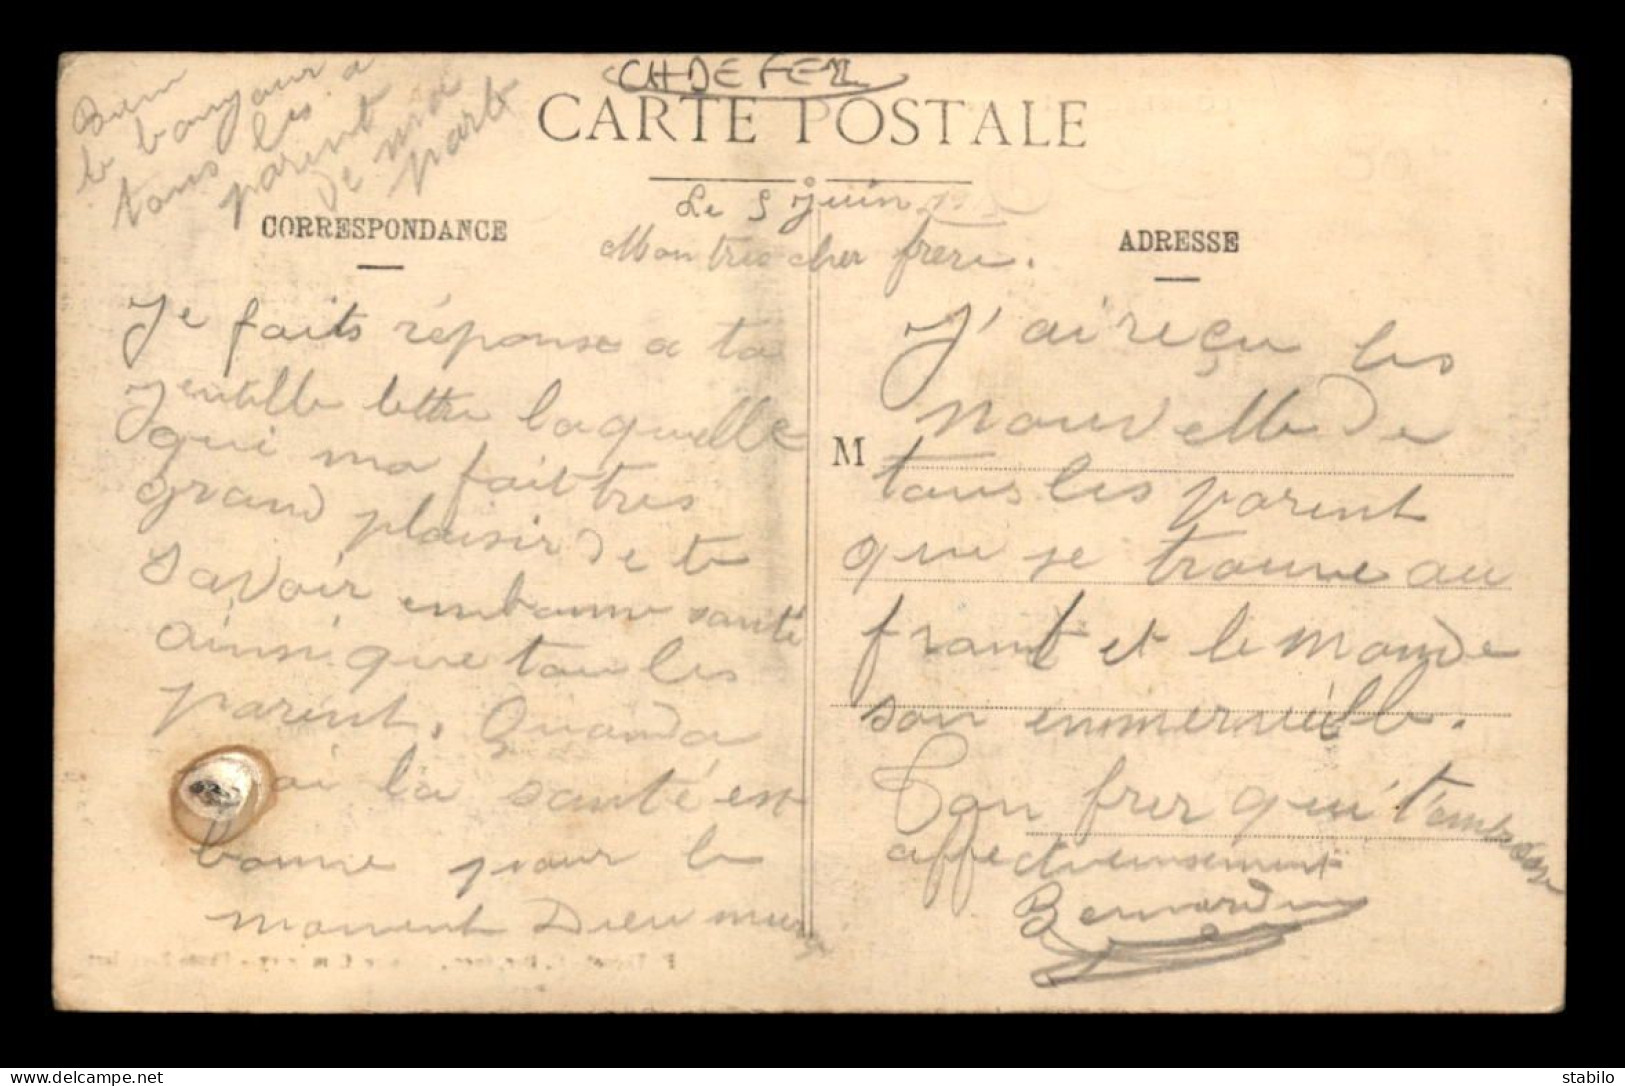 CH DE FER
CARTE POSTALE
Bien
le bonjour a
tous les
parent
de ma
part
Le 5 Juin
CORRESPONDANCE
ADRESSE
Mon tres cher frere.
Je faits réponse a ta
jentille lettre laquelle
qui ma fait tres
grand plaisir de te
savoir enbonne santé
ainsi que tou les
parent. Quanda
moi la santé est
bonne pour le
moment Dieu mersi
J'ai reçu les
nouvelle de
M
tous les parent
que se trouve au
front et le monde
son enmerveille.
Ton frer qui t'embrasse
affectueusement
Bernardin
stabilo